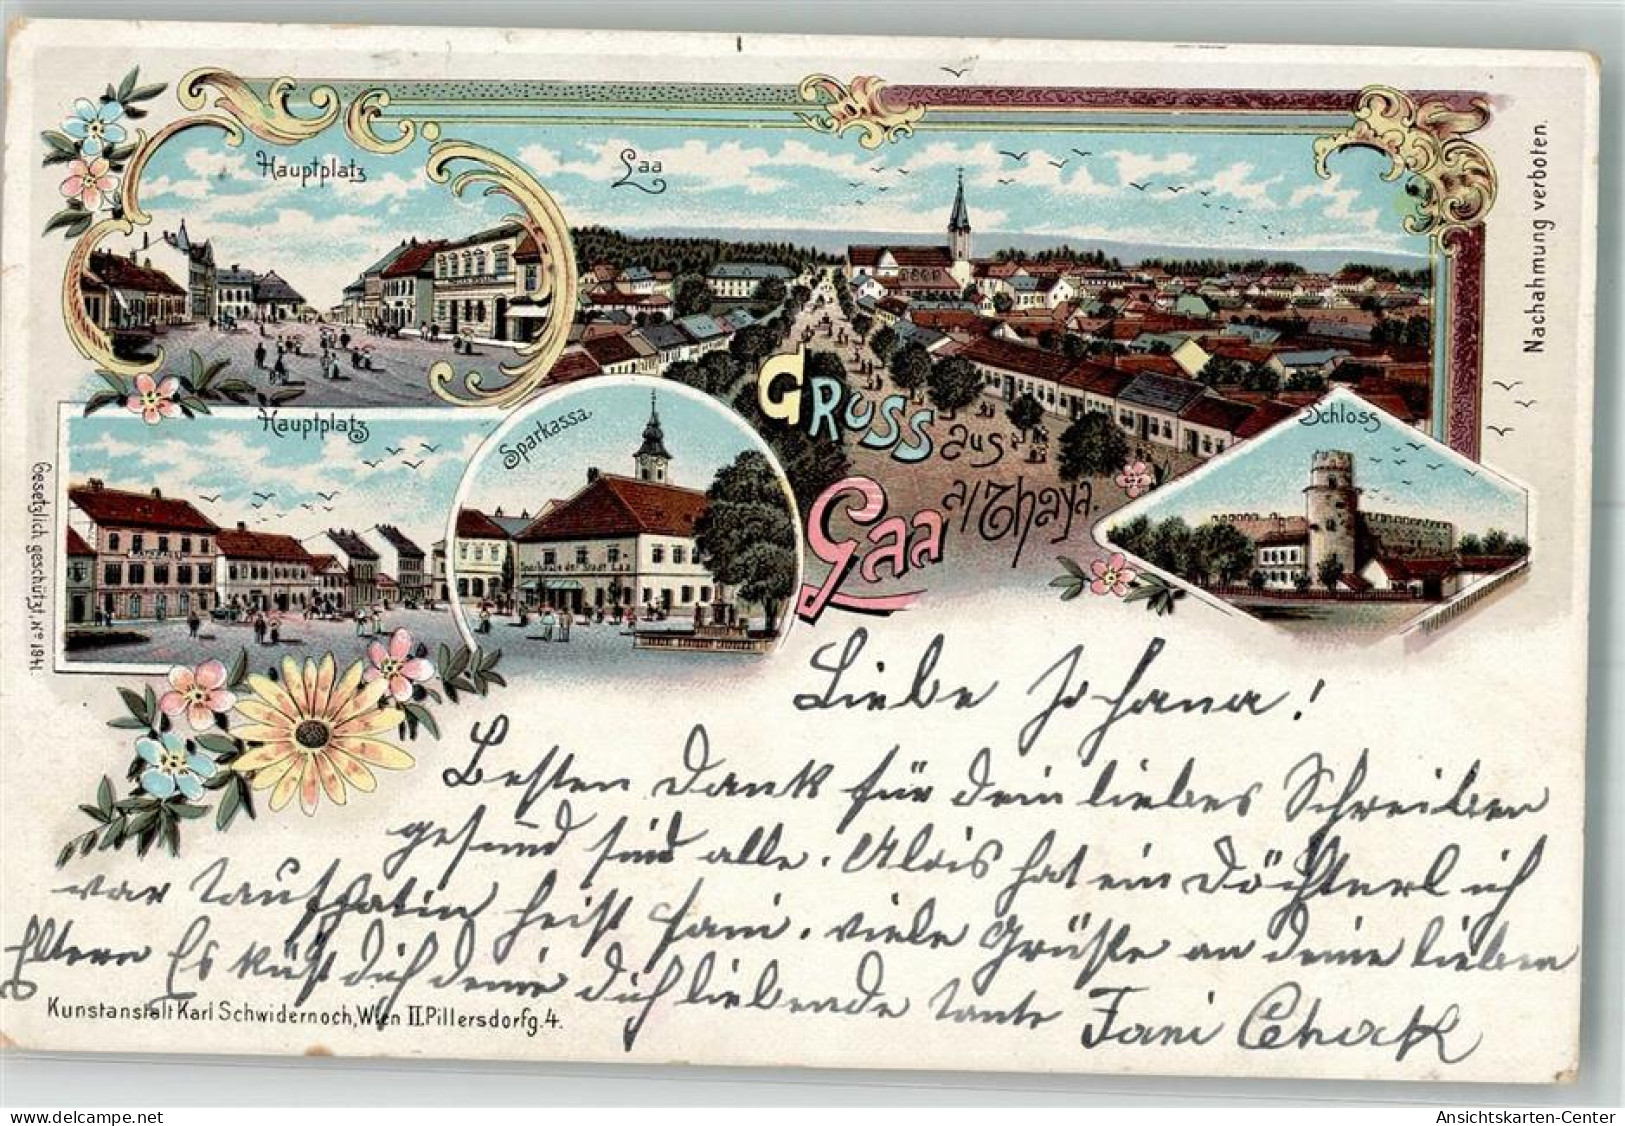 Hauptplatz
Laa
Nachahmung verboten.
Hauptplatz
Sparkassa.
Sparkasse der Stadt Laa
GRUSS aus
Laa a/Thaya.
Schloss
Gesetzlich geschützt, No 1841.
Liebe Johana!
Besten Dank für dein liebes Schreiben
gesund sind alle. Alois hat ein Döchterl ich
war Taufpatin heist Fani. viele Grüsse an deine lieben
Eltern Es küßt dich deine dich liebende Tante Fani
Kunstanstalt Karl Schwidernoch, Wien II. Pillersdorfg. 4.
Ansichtskarten-Center